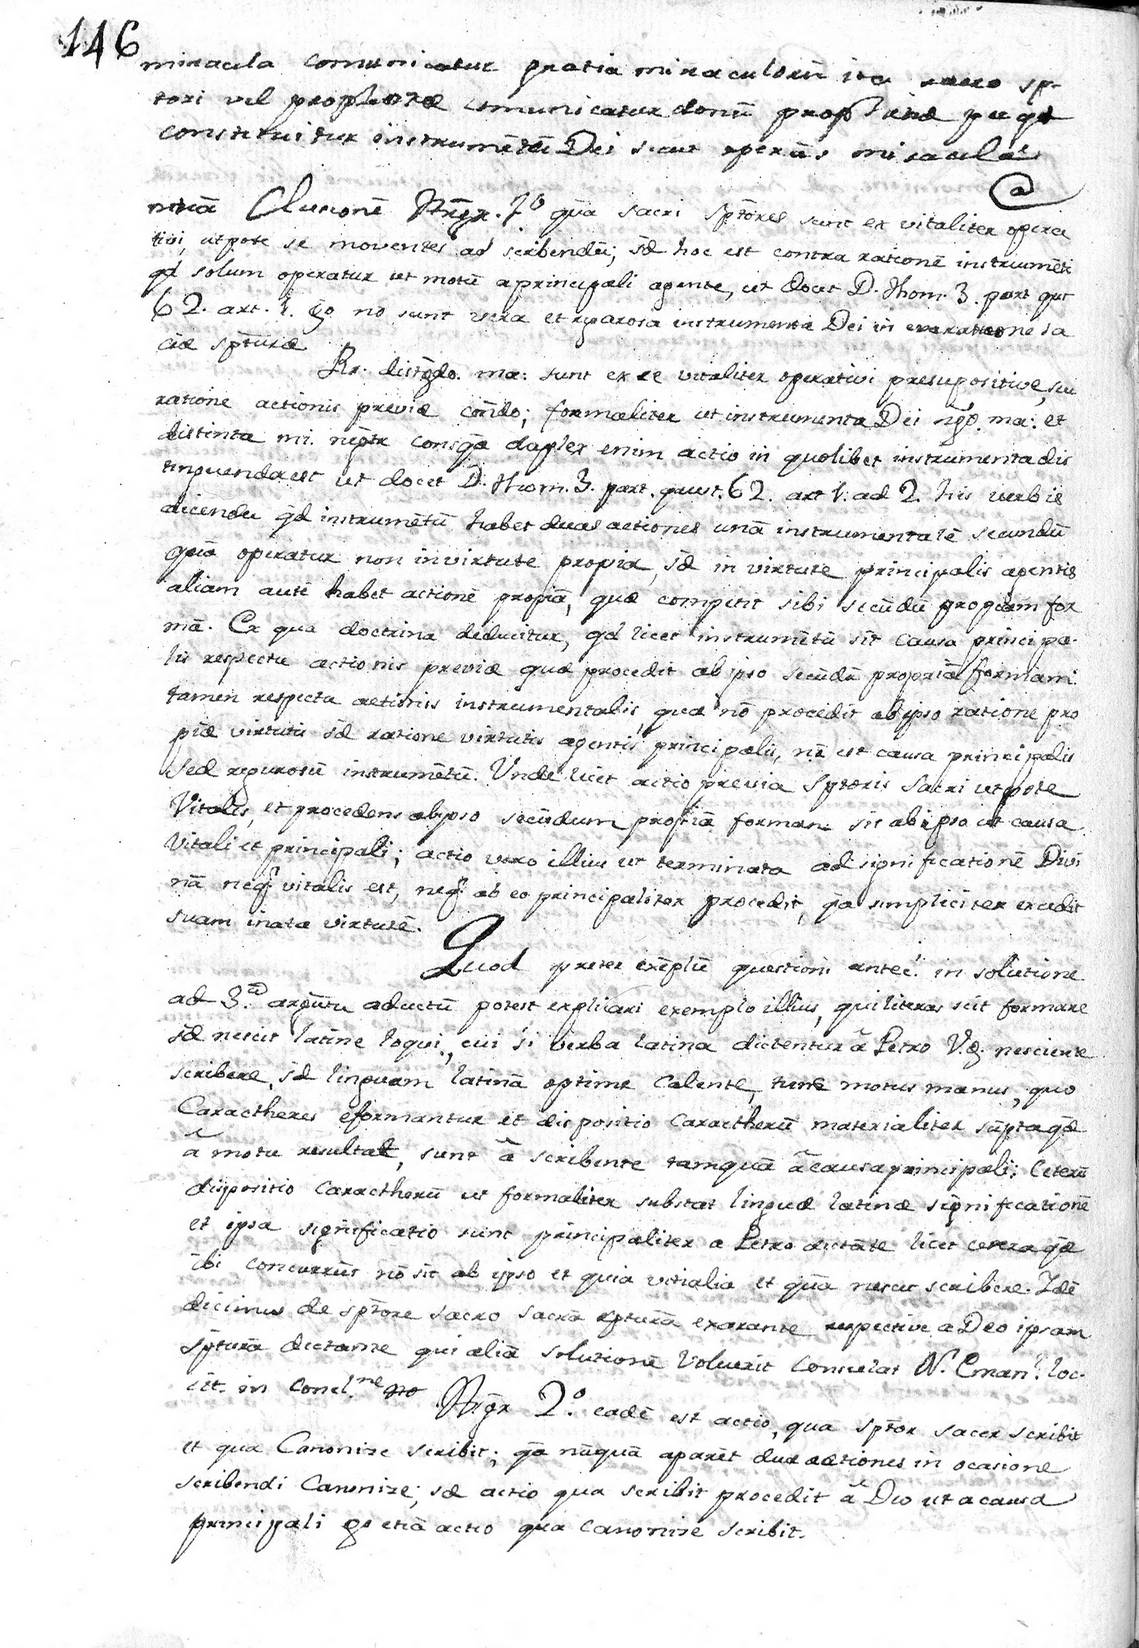 146
miracula comunicatur gratia miraculorū ita sacro sp-
tori vel prophetæ comunicatur donū prophetiæ per qd
constituitur instrumētū Dei sicut operās miracula
ntrā Clusionē Argr. 1º qīa sacri sptōres sunt ex vitaliter opera
tivi, utpote se moventes ad scribendū; sd̄ hoc est contra rationē instrumēti
qd solum operatur ut motū a principali agente, ut docet D. Thom. 3. part. qst
62. art. 1. gō no sunt vera et rigorosa instrumenta Dei in exaratione sa
cræ sptūræ
Rs. distgdo. ma: sunt ex se vitaliter operativi presupositive, seu
ratione actionis previæ con̄do; formaliter ut instrumenta Dei ngo. ma: et
distinta mi. negtr consqā duplex enim actio in quolibet instrumento dis
tinguenda est ut docet D. Thom. 3. part. quest. 62. art 1. ad 2. his verbis
dicendū qd intrumētū habet duas actiones unā instrumentalē secundū
quā operatur non in virtute propia, sd̄ in virtute principalis agentis
aliam autē habet actionē propiā, quæ competit sibi secūdū propiam for
mā. Ex qua doctrina deducitur, qd licet instrumētū sit causa principa-
lis respectu actionis previæ quæ procedit ab ipso secūdū propriā formam
tamen respectu actionis instrumentalis, quæ nō procedit ab ipso ratione pro
piæ virtutis sd̄ ratione virtutis agentis principalis, nō est causa principalis
sed rigurosū instrumētū. Unde licet actio previa sptōris sacri utpote
Vitalis, et procedens ab ipso secūdum propiā forman sit ab ipso ut causa
Vitali et principali; actio vero illius ut terminata ad significationē Divi
nā neq. vitalis est, neq. ab eo principaliter procedit, qīa simpliciter excedit
suam inatā virtutē.
Quod preter exēplū questioni antec. in solutione
ad 3.ū argūtū aductū potest explicari exemplo illius, qui literas scit formare
sd̄ nescit latine loqui, cui si verba latina dictentur â Petro V.g. nesciente
scribere, sd̄ linguam latinā optime calente, tunc motus manus, quo
Caractheres eformantur et dispositio caractherū materialiter sūpta qæ
â motu resultat, sunt â scribente tamquā â causa principali: Ceterū
dispositio caractherū ut formaliter substat linguæ latinæ significationē
et ipsa significatio sunt principaliter a Petro dictāte licet cetera qæ
ibi concurrūt nō sīt ab ipso et quia vitialia et quīa nescit scribere. Idē
dicimus de sptōre sacro sacrā sptūrā exarante respective a Deo ipsam
sptūrā dictante qui aliā solutionē Voluerit Consulat N. Eman.l loc.
cit. in concl.ne
Argr 2º. eadē est actio, qua sptōr sacer scribit
et qua Canonize scribit; qīa nūquā aparēt duæ actiones in ocasione
scribendi Canonize; sd̄ actio qua scribit procedit â Deo ut a causa
principali go etiā actio qua canonize scribit.